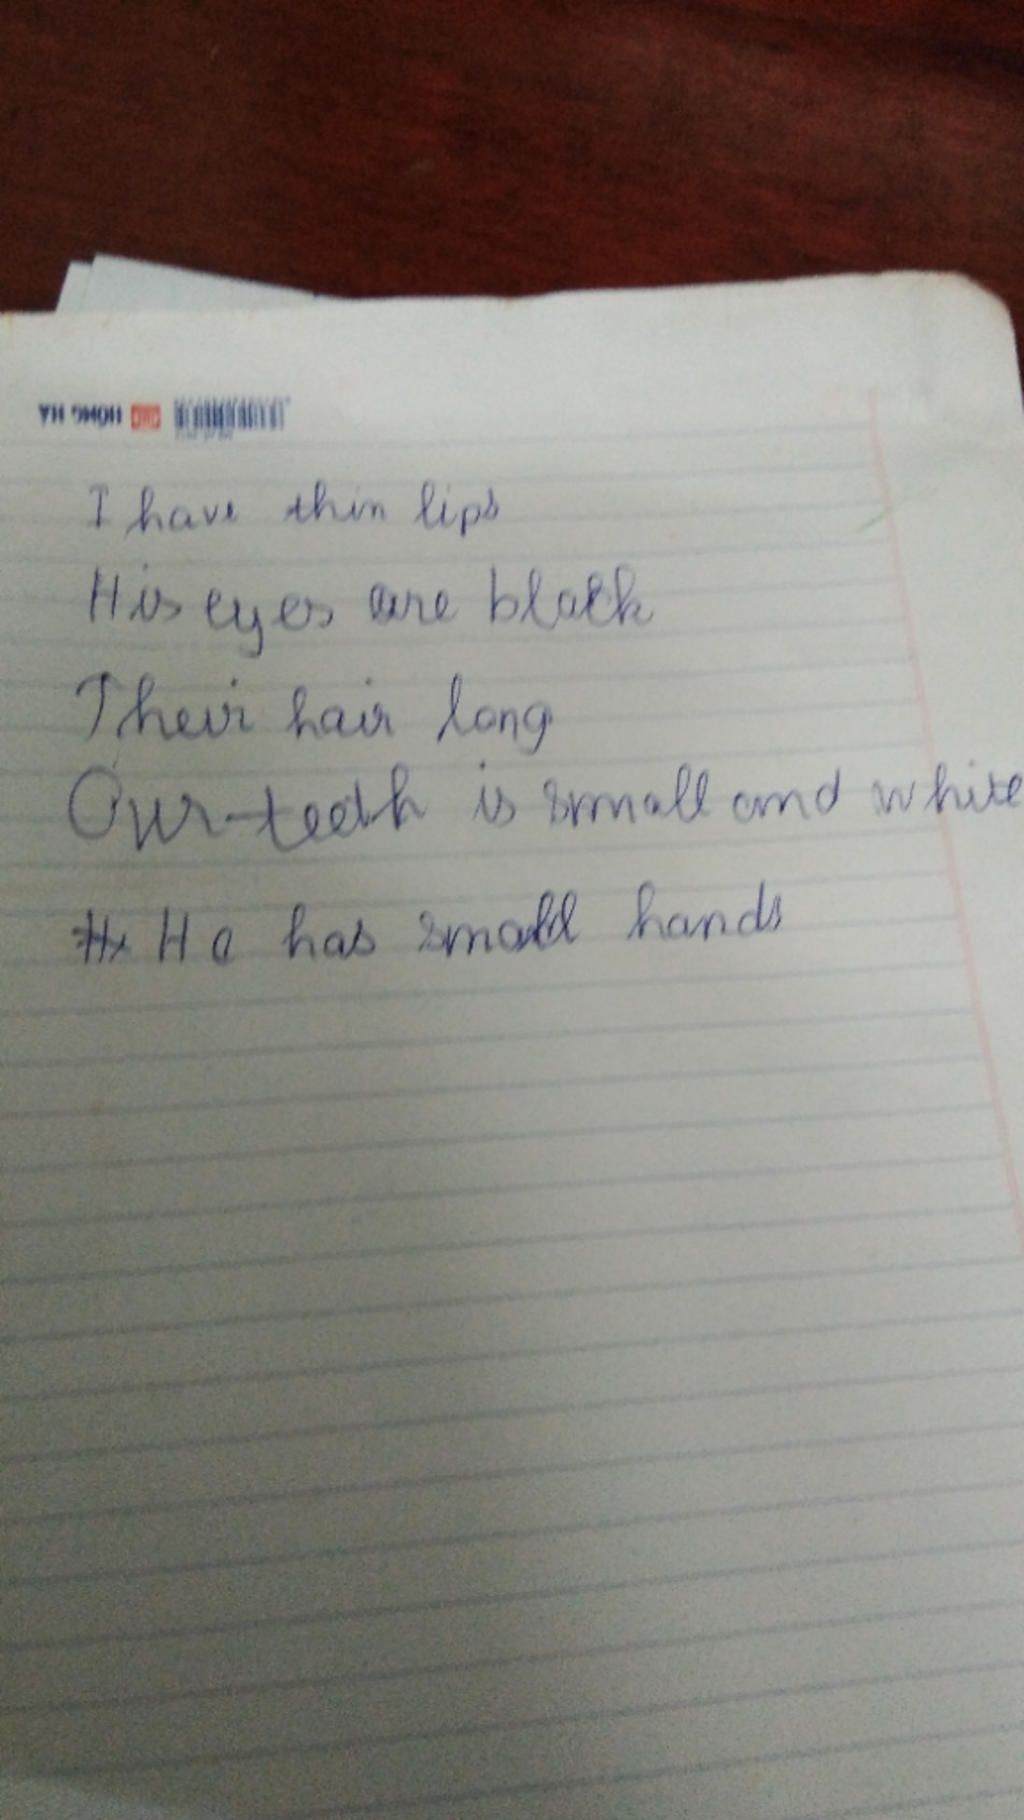 HONG HA
I have thin lips
His eyes are black
Their hair long
Our teeth is small and white
He has small hands